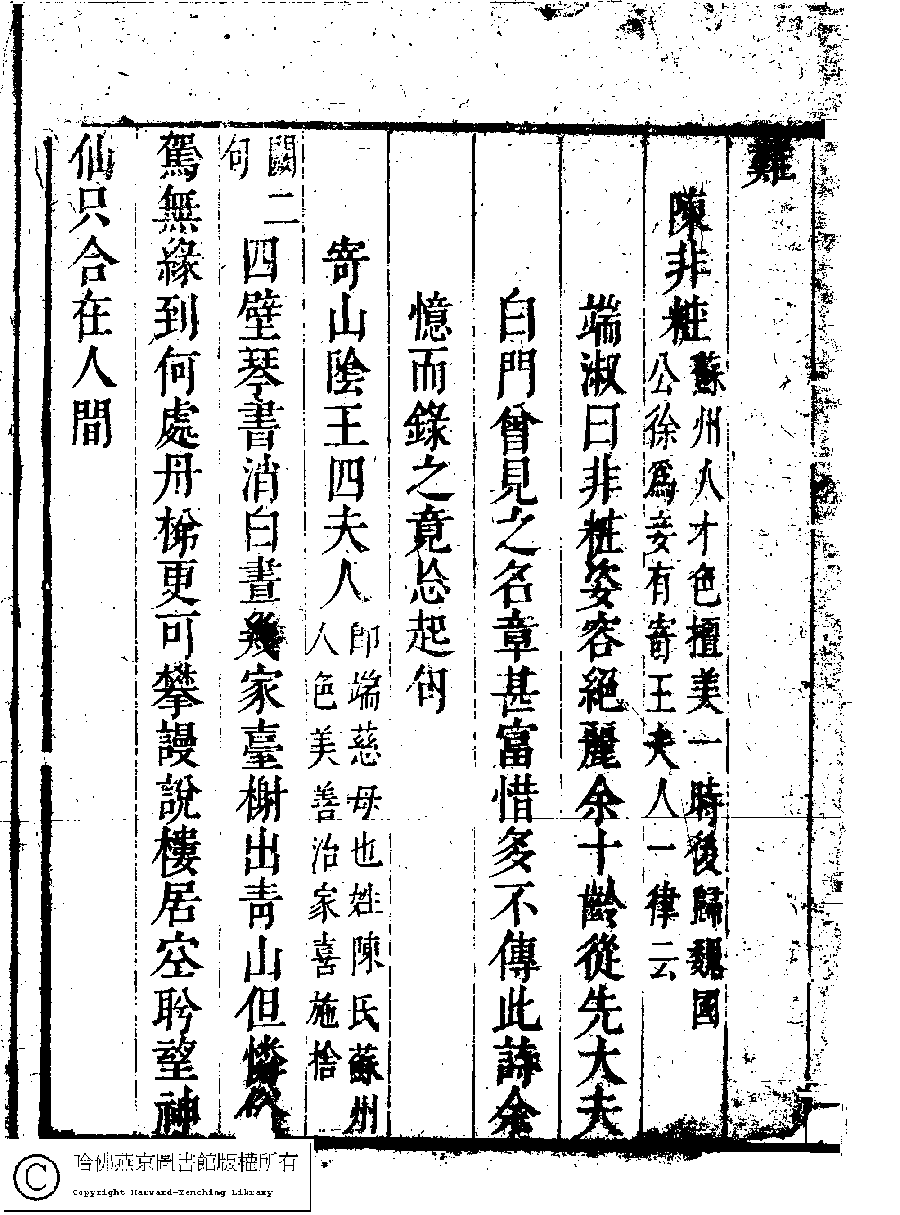 難
陳非粧蘇州人才色擅美一時後歸魏國
公徐爲妾有寄王夫人一律云
端淑曰非粧姿容絕麗余十齡從先大夫
白門曾見之名章甚富惜多不傳此詩余
憶而錄之竟忘起句
寄山陰王四夫人卽端慈母也姓陳氏蘇州
人色美善治家喜施捨
闕二
句
四壁琴書消白晝幾家臺榭出青山但憐
駕無緣到何處丹梯更可攀謾說樓居空盻望神
仙只合在人間
哈佛燕京圖書館版權所有
Copyright Harvard-Yenching Library